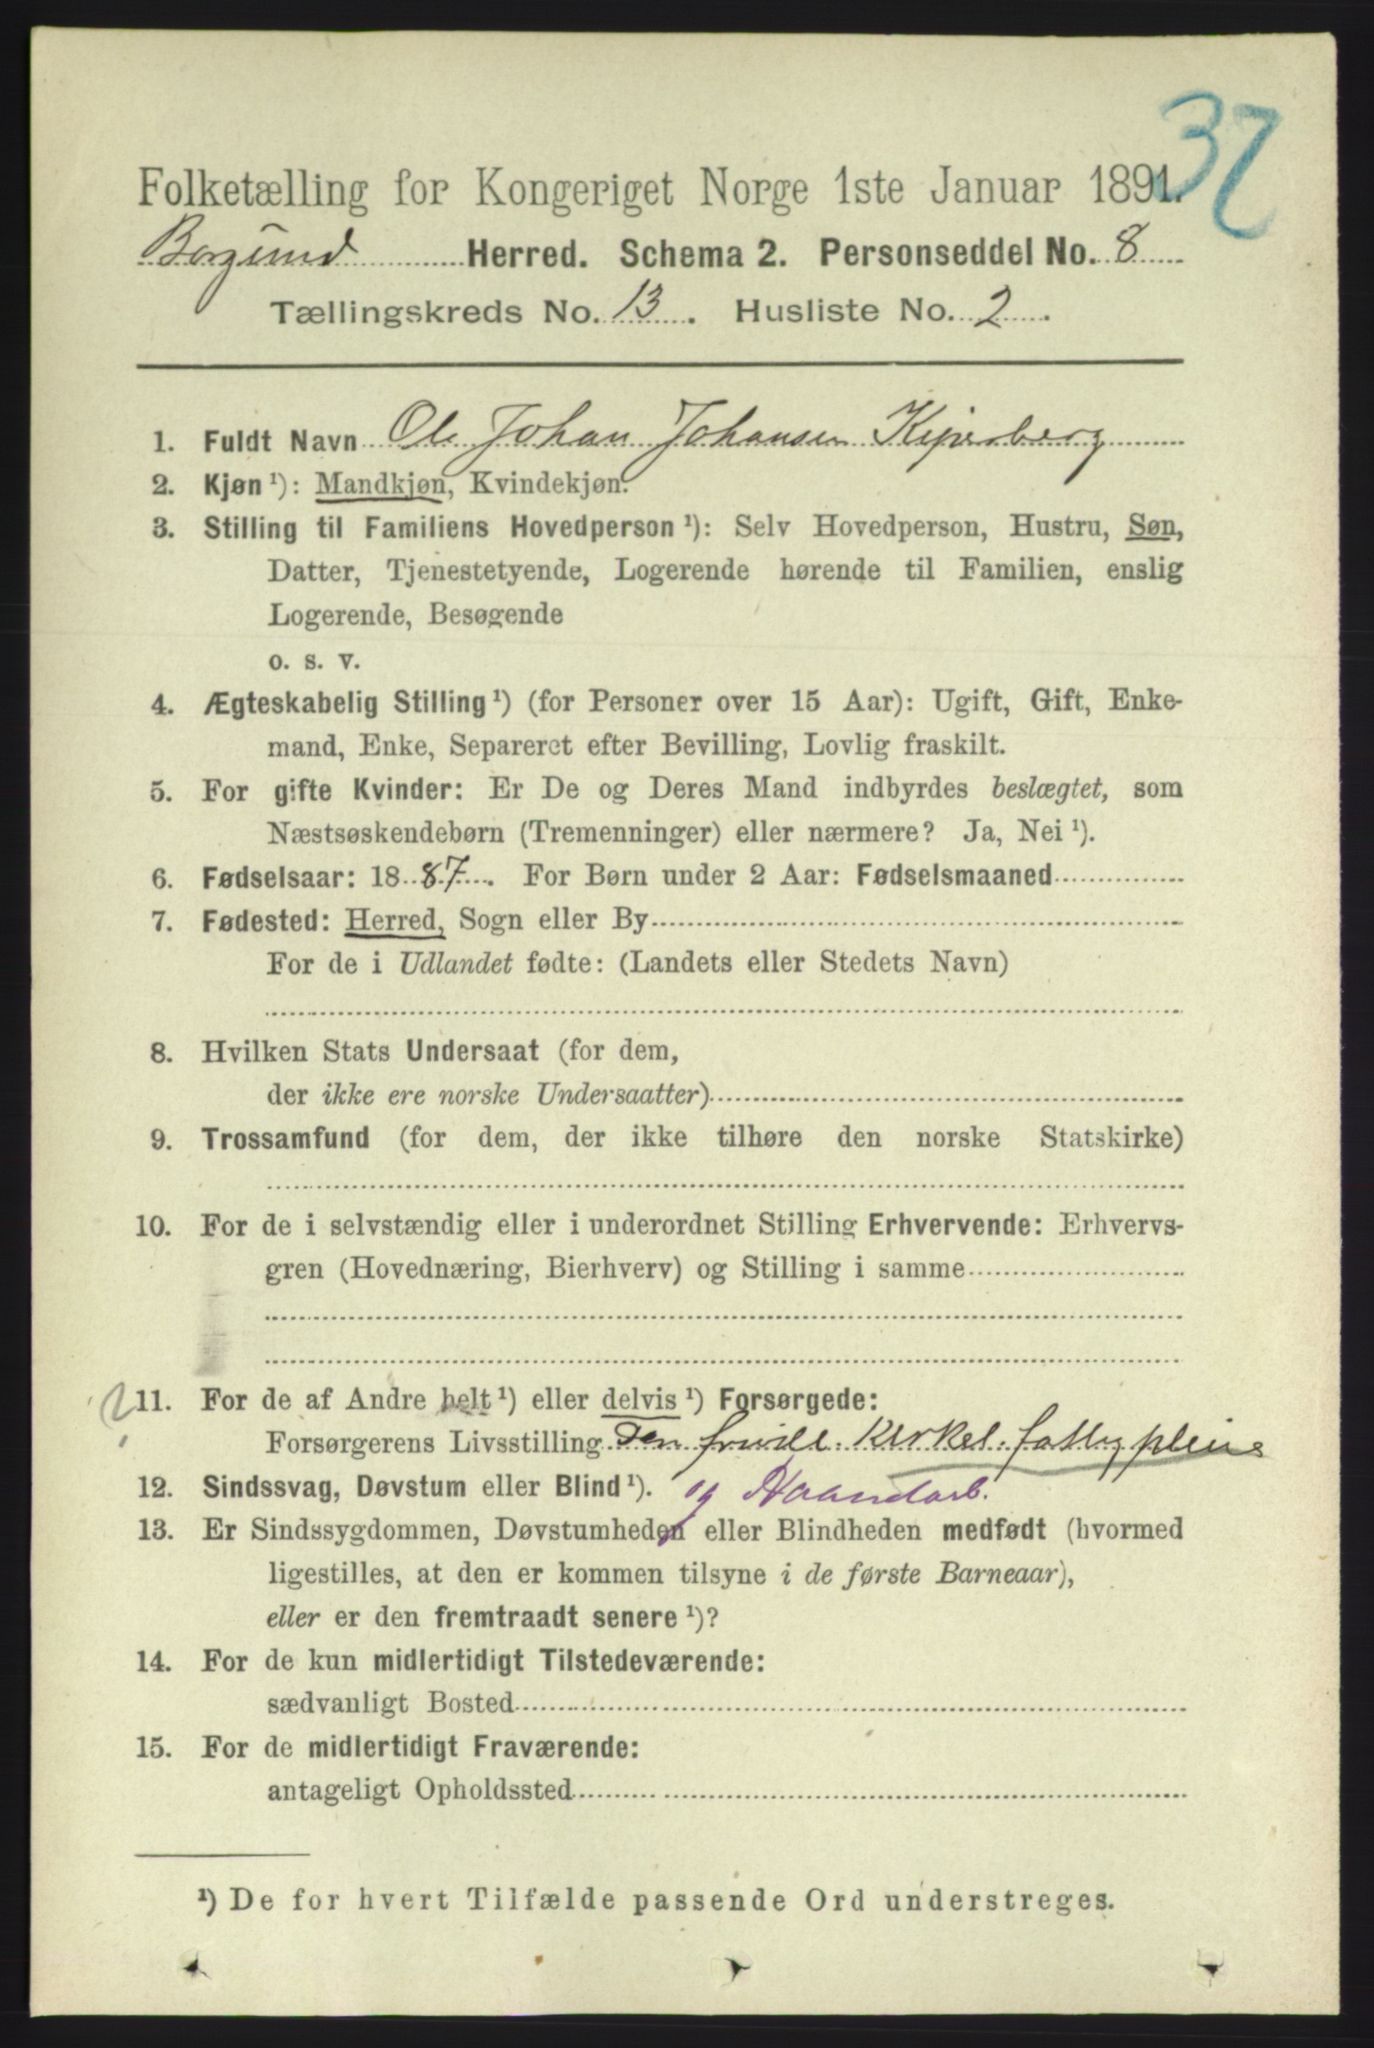 37
Folketælling for Kongeriget Norge 1ste Januar 1891.
Borgund Herred. Schema 2. Personseddel No. 8
Tællingskreds No. 13. Husliste No. 2.
1. Fuldt Navn Ole Johan Johansen
2. Kjøn ¹): Mandkjøn, Kvindekjøn.
3. Stilling til Familiens Hovedperson ¹): Selv Hovedperson, Hustru, Søn,
Datter, Tjenestetyende, Logerende hørende til Familien, enslig
Logerende, Besøgende
o. s. v.
4. Ægteskabelig Stilling ¹) (for Personer over 15 Aar): Ugift, Gift, Enke-
mand, Enke, Separeret efter Bevilling, Lovlig fraskilt.
5. For gifte Kvinder: Er De og Deres Mand indbyrdes beslægtet, som
Næstsøskendebørn (Tremenninger) eller nærmere? Ja, Nei ¹).
6. Fødselsaar: 1887. For Børn under 2 Aar: Fødselsmaaned
7. Fødested: Herred, Sogn eller By
For de i Udlandet fødte: (Landets eller Stedets Navn)
8. Hvilken Stats Undersaat (for dem,
der ikke ere norske Undersaatter)
9. Trossamfund (for dem, der ikke tilhøre den norske Statskirke)
10. For de i selvstændig eller i underordnet Stilling Erhvervende: Erhvervs-
gren (Hovednæring, Bierhverv) og Stilling i samme
? 11. For de af Andre helt ¹) eller delvis ¹) Forsørgede:
Forsørgerens Livsstilling
12. Sindssvag, Døvstum eller Blind ¹). og Haandarb.
13. Er Sindssygdommen, Døvstumheden eller Blindheden medfødt (hvormed
ligestilles, at den er kommen tilsyne i de første Barneaar),
eller er den fremtraadt senere ¹)?
14. For de kun midlertidigt Tilstedeværende:
sædvanligt Bosted
15. For de midlertidigt Fraværende:
antageligt Opholdssted
¹) De for hvert Tilfælde passende Ord understreges.